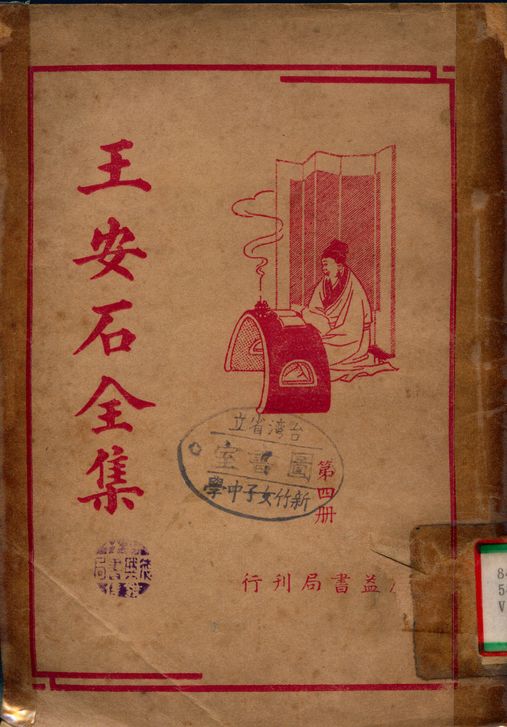 王安石全集
台湾省立
圖書室
新竹女子中學
第四册
益書局刊行
V